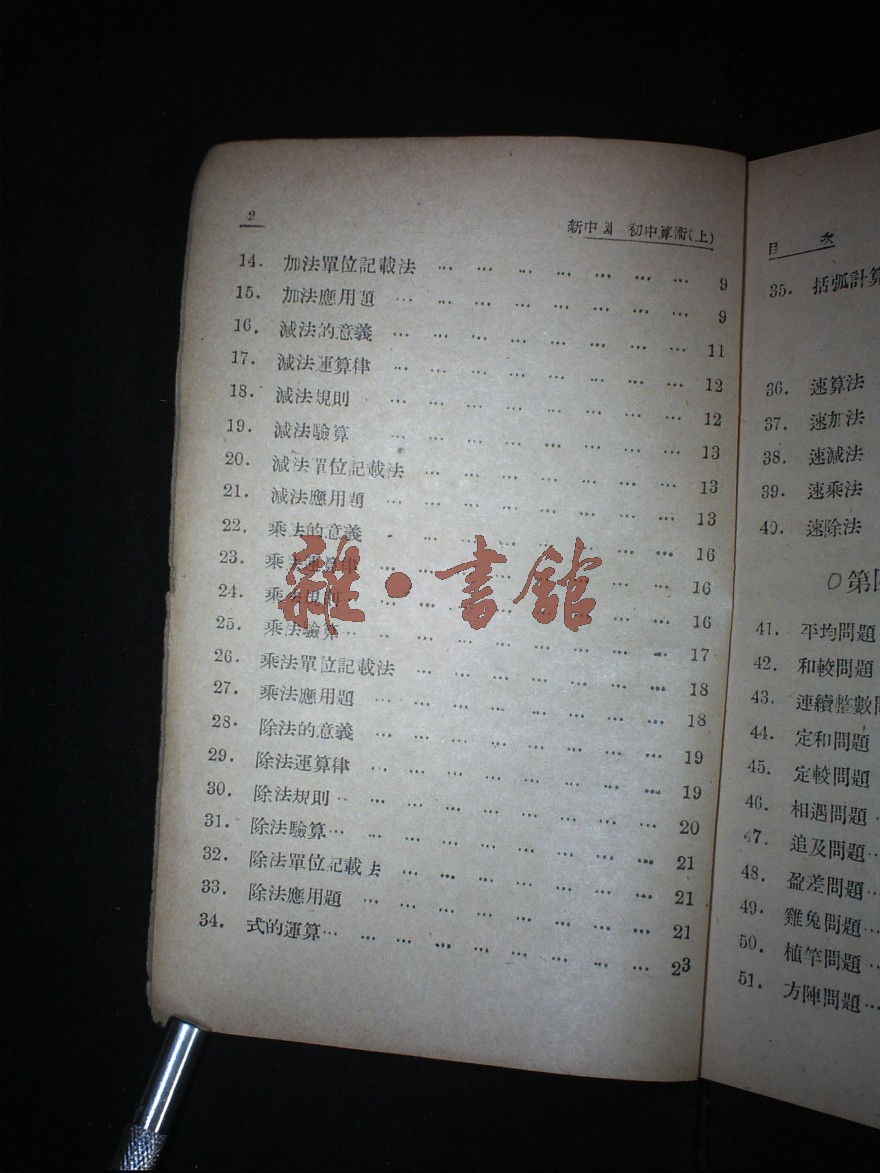 2
新中國 初中算術(上)
14. 加法單位記載法 … … … … … … … 9
15. 加法應用題 … … … … … … … … 9
16. 減法的意義 … … … … … … … … 11
17. 減法運算律 … … … … … … … … 12
18. 減法規則 … … … … … … … … 12
19. 減法驗算 … … … … … … … … 13
20. 減法單位記載法 … … … … … … … 13
21. 減法應用題 … … … … … … … … 13
22. 乘法的意義 … … … … … … … … 16
23. 乘法運算律 … … … … … … … … 16
24. 乘法規則 … … … … … … … … … 16
25. 乘法驗算 … … … … … … … … … 17
26. 乘法單位記載法 … … … … … … … 18
27. 乘法應用題 … … … … … … … … 18
28. 除法的意義 … … … … … … … … 19
29. 除法運算律 … … … … … … … … 19
30. 除法規則 … … … … … … … … … 20
31. 除法驗算 … … … … … … … … … 21
32. 除法單位記載法 … … … … … … … 21
33. 除法應用題 … … … … … … … … 21
34. 式的運算 … … … … … … … … … 23
雜·書館
目 次
35. 括弧計算
36. 速算法
37. 速加法
38. 速減法
39. 速乘法
40. 速除法
第四
41. 平均問題
42. 和較問題
43. 連續整數問
44. 定和問題
45. 定較問題
46. 相遇問題
47. 追及問題…
48. 盈差問題…
49. 雞兔問題…
50. 植竿問題…
51. 方陣問題…